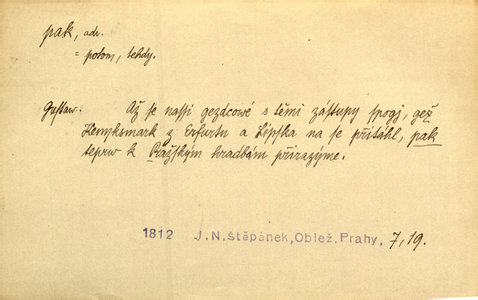 pak, adv.
= potom, tehdy.
Gustaw: Až se nassi gezdcowé s těmi zástupy spogj, gež
Kenyksmark z Erfurtu a Lipska na se přitáhl, pak
teprw k Pražským hradbám přirazýme.
1812 J. N. Štěpánek, Oblež. Prahy, 7, 19.